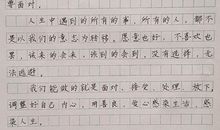 要面对。
人生中遇到的所有的事，所有的人，都不
是以我们的意志为转移。愿意也好，不喜欢也
罢，该来的会来，该到的会到，没有选择，无
法逃避。
我们能做的就是面对、接受、处理、放下，
调整好自己内心，用善良、爱心感染生活，感
染人生。